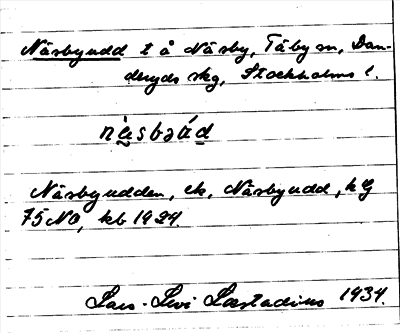 Näsbyudd t å Näsby, Täby sn, Dan-
deryds skg, Stockholms l.
Näsbyudden, ek, Näsbyudd, hg
75 NO, kb 1924.
Lars-Levi Læstadius 1934.